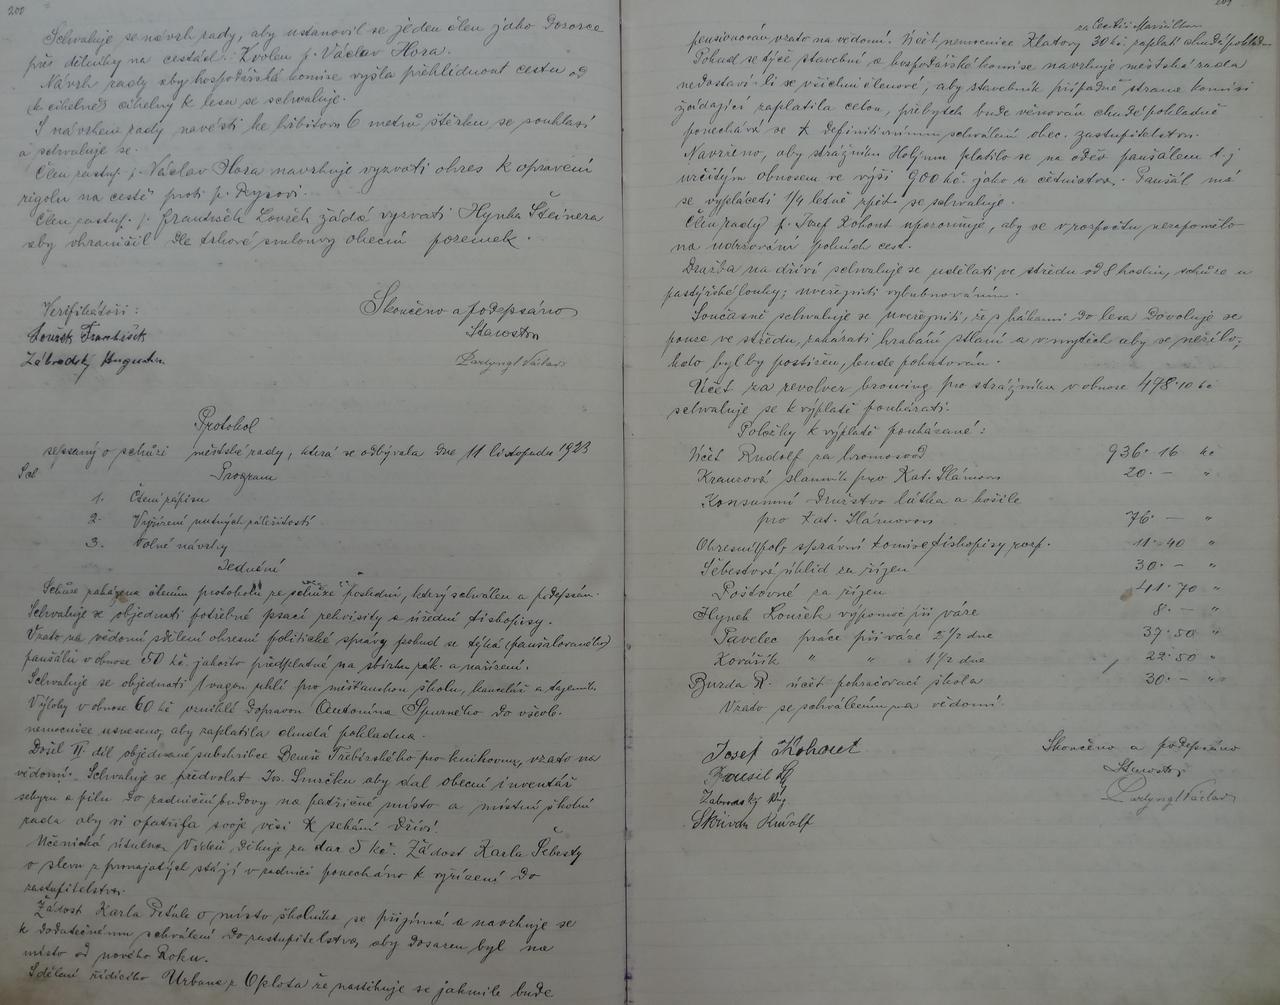 200
Schvaluje se návrh rady, aby ustanovil se jeden člen jako dozorce
při dělníky na cestách. Zvolen p. Václav Hora.
Návrh rady aby hospodářská komise vyšla přihlédnout cestu od
k cihelně cihelny k lesu se schvaluje.
S návrhem rady navésti ke hřbitovu 6 metrů štěrku se souhlasí
a schvaluje se.
Člen zastup. p. Václav Hora navrhuje vyzvati okres k opravení
rigolu na cestě proti p. Rysovi.
Člen zastup. p. František Loušek žádá vyzvati Hynka Steinera
aby ohraničil dle trhové smlouvy obecní pozemek.
Verifikátoři:
Loušek František
Zábrodský Augustin
Skončeno a podepsáno
Starosta
Protokol
sepsaný o schůzi městské rady, která se odbývala dne 11 listopadu 1923
Program
1. Čtení zápisu
2. Vyřízení nutných záležitostí
3. Volné návrhy
Jednání
Schůze zahájena čtením protokolu ze schůze poslední, který schválen a podepsán.
Schvaluje se objednati potřebné psací rekvisity a úřední tiskopisy.
Vzato na vědomí sdělení okresní politické správy pokud se týká (paušalovaného)
paušálu v obnose 50 kč jakožto předplatné na sbírku zák. a nařízení.
Schvaluje se objednati 1 vagon uhlí pro měšťanskou školu, kancelář a tajemn.
Výlohy v obnose 60 kč vzniklé dopravou Antonína Spurného do všeob.
nemocnice usneseno, aby zaplatila chudá pokladna.
Došel II díl objednané subskribce Beneše Třebízského pro knihovnu, vzato na
vědomí. Schvaluje se předvolat Jos. Smrčku aby dal obecní inventář
sekyru a pilu do radniční budovy na patřičné místo a místní školní
rada aby si opatřila svoje věci k sekání dříví.
Učednická útulna Vídeň děkuje za dar 5 kč. Žádost Karla Šebesty
o slevu z pronajatých stájí v radnici ponecháno k vyřízení do
zastupitelstva.
Žádost Karla Pešula o místo školníka se přijímá a navrhuje se
k dodatečnému schválení do zastupitelstva, aby dosazen byl na
místo od nového Roku.
Sdělení řídícího Urbana z Oplota že nastěhuje se jakmile bude
za Cecilii Maršálkou
pensionován vzato na vědomí. Účet nemocnice Klatovy 30 kč zaplatí chudá poklad.
Pokud se týče stavební a hospodářské komise navrhuje městská rada
nedostaví-li se všichni členové, aby stavebník případně strana komisi
žádající zaplatila celou, přebytek bude věnován chudé pokladně
ponechává se k definitivnímu schválení obec. zastupitelstvu.
Navrženo, aby strážníku Holjum platilo se na oděv paušálem t. j
určitým obnosem ve výši 900 kč. jako u četnictva. Paušál má
se vypláceti 1/4 letně zpět. se schvaluje.
Člen rady p. Josef Kohout upozorňuje, aby se v rozpočtu nezapomělo
na udržování polních cest.
Dražba na dříví schvaluje se udělati ve středu od 8 hodin, schůze u
pastýřské louky; uveřejniti vybubnováním.
Současně schvaluje se uveřejniti, že s hákami do lesa dovoluje se
pouze ve středu, zakázati hrabání stlaní a v mytech aby se nežilo,
kdo byl by postižen, bude pokutován.
Účet za revolver browing pro strážníka v obnose 478·10 kč
schvaluje se k výplatě poukázati.
Položky k výplatě poukázané:
Účet Rudolf za hromosvod 936·16 kč
Krausová slamník pro Kat. Slámovou 20·— "
Konsumní Družstvo látka a košile
pro Kat. Slámovou 76·— "
Okresní pol. správní komise tiskopisy rozp. 11·40 "
Šebestová úklid za říjen 30·— "
Poštovné za říjen 41·70 "
Hynek Loušek výpomoc při váze 8·— "
Pavelec práce při váze 2 1/2 dne 37·50 "
Kovářík " " 1 1/2 dne 22·50 "
Burda R. účet pokračovací škola 30·— "
Vzato se schválením na vědomí.
Josef Kohout
Skřivan Rudolf
Skončeno a podepsáno
Starosta